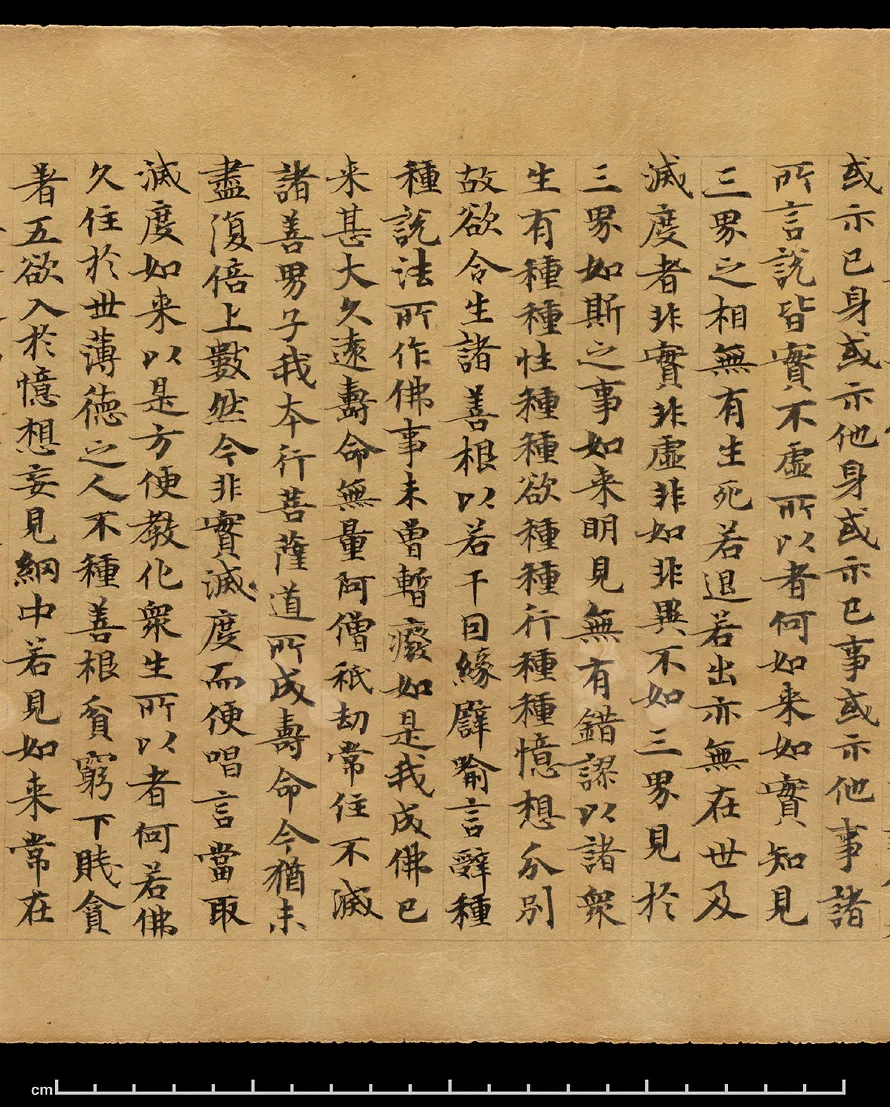 或示己身或示他身或示己事或示他事諸
所言說皆實不虛所以者何如来如實知見
三界之相無有生死若退若出亦無在世及
滅度者非實非虛非如非異不如三界見於
三界如斯之事如来明見無有錯謬以諸衆
生有種種性種種欲種種行種種憶想分別
故欲令生諸善根以若干因緣譬喻言辭種
種說法所作佛事未曾暫廢如是我成佛已
来甚大久遠壽命無量阿僧祇劫常住不滅
諸善男子我本行菩薩道所成壽命今猶未
盡復倍上數然今非實滅度而便唱言當取
滅度如来以是方便教化衆生所以者何若佛
久住於世薄德之人不種善根貧窮下賤貪
著五欲入於憶想妄見網中若見如来常在
cm